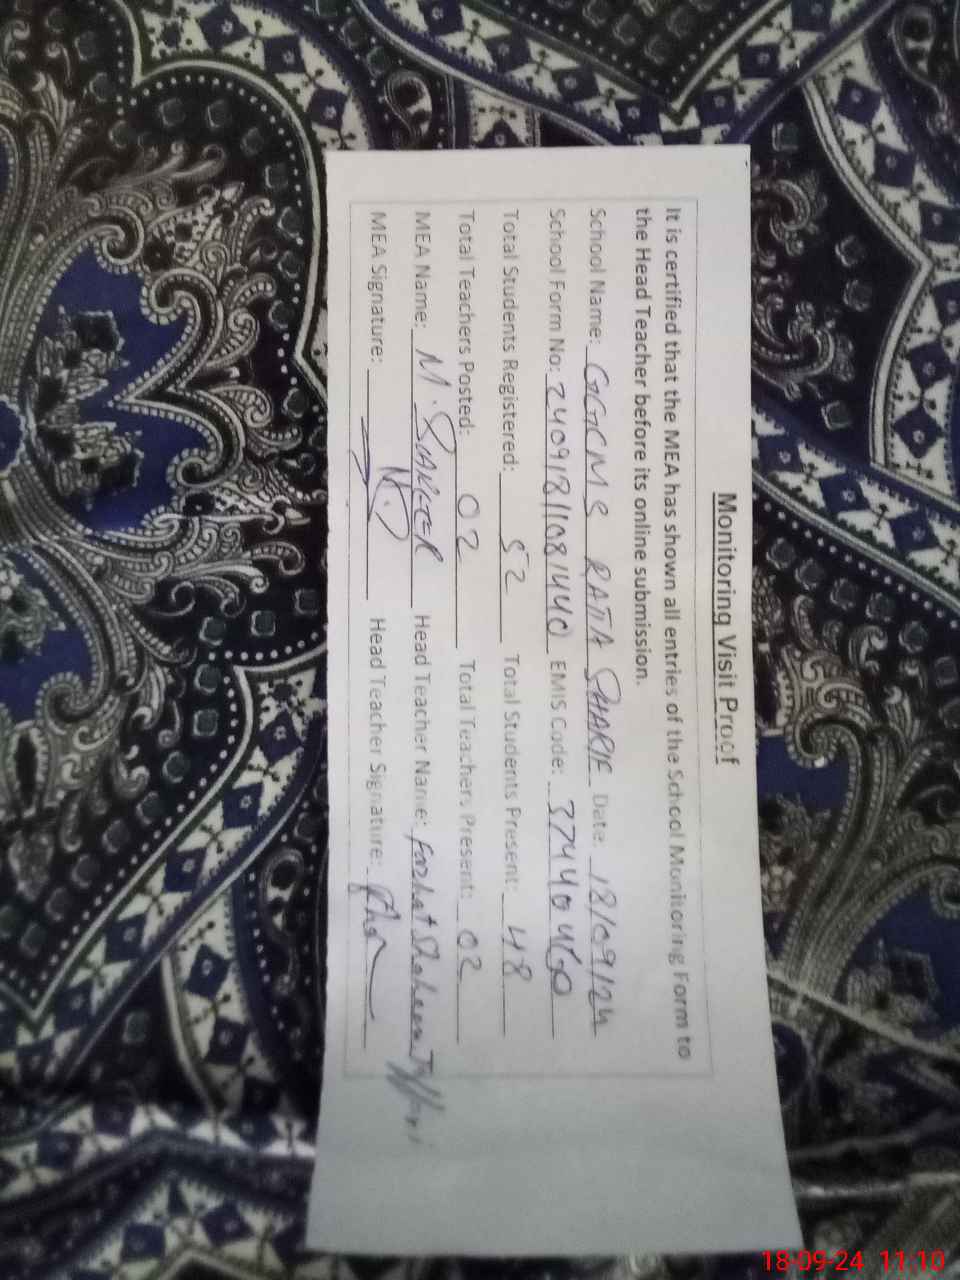 Monitoring Visit Proof
It is certified that the MEA has shown all entries of the School Monitoring Form to
the Head Teacher before its online submission.
School Name: GGCMS RATTA SHARIF Date: 18/09/24
School Form No: 24091811081440 EMIS Code:
Total Students Registered: 52 Total Students Present: 48
Total Teachers Posted: 02 Total Teachers Present: 02
MEA Name: M. Head Teacher Name: Farhat Shaheen
MEA Signature: Head Teacher Signature:
18-09-24 11:10